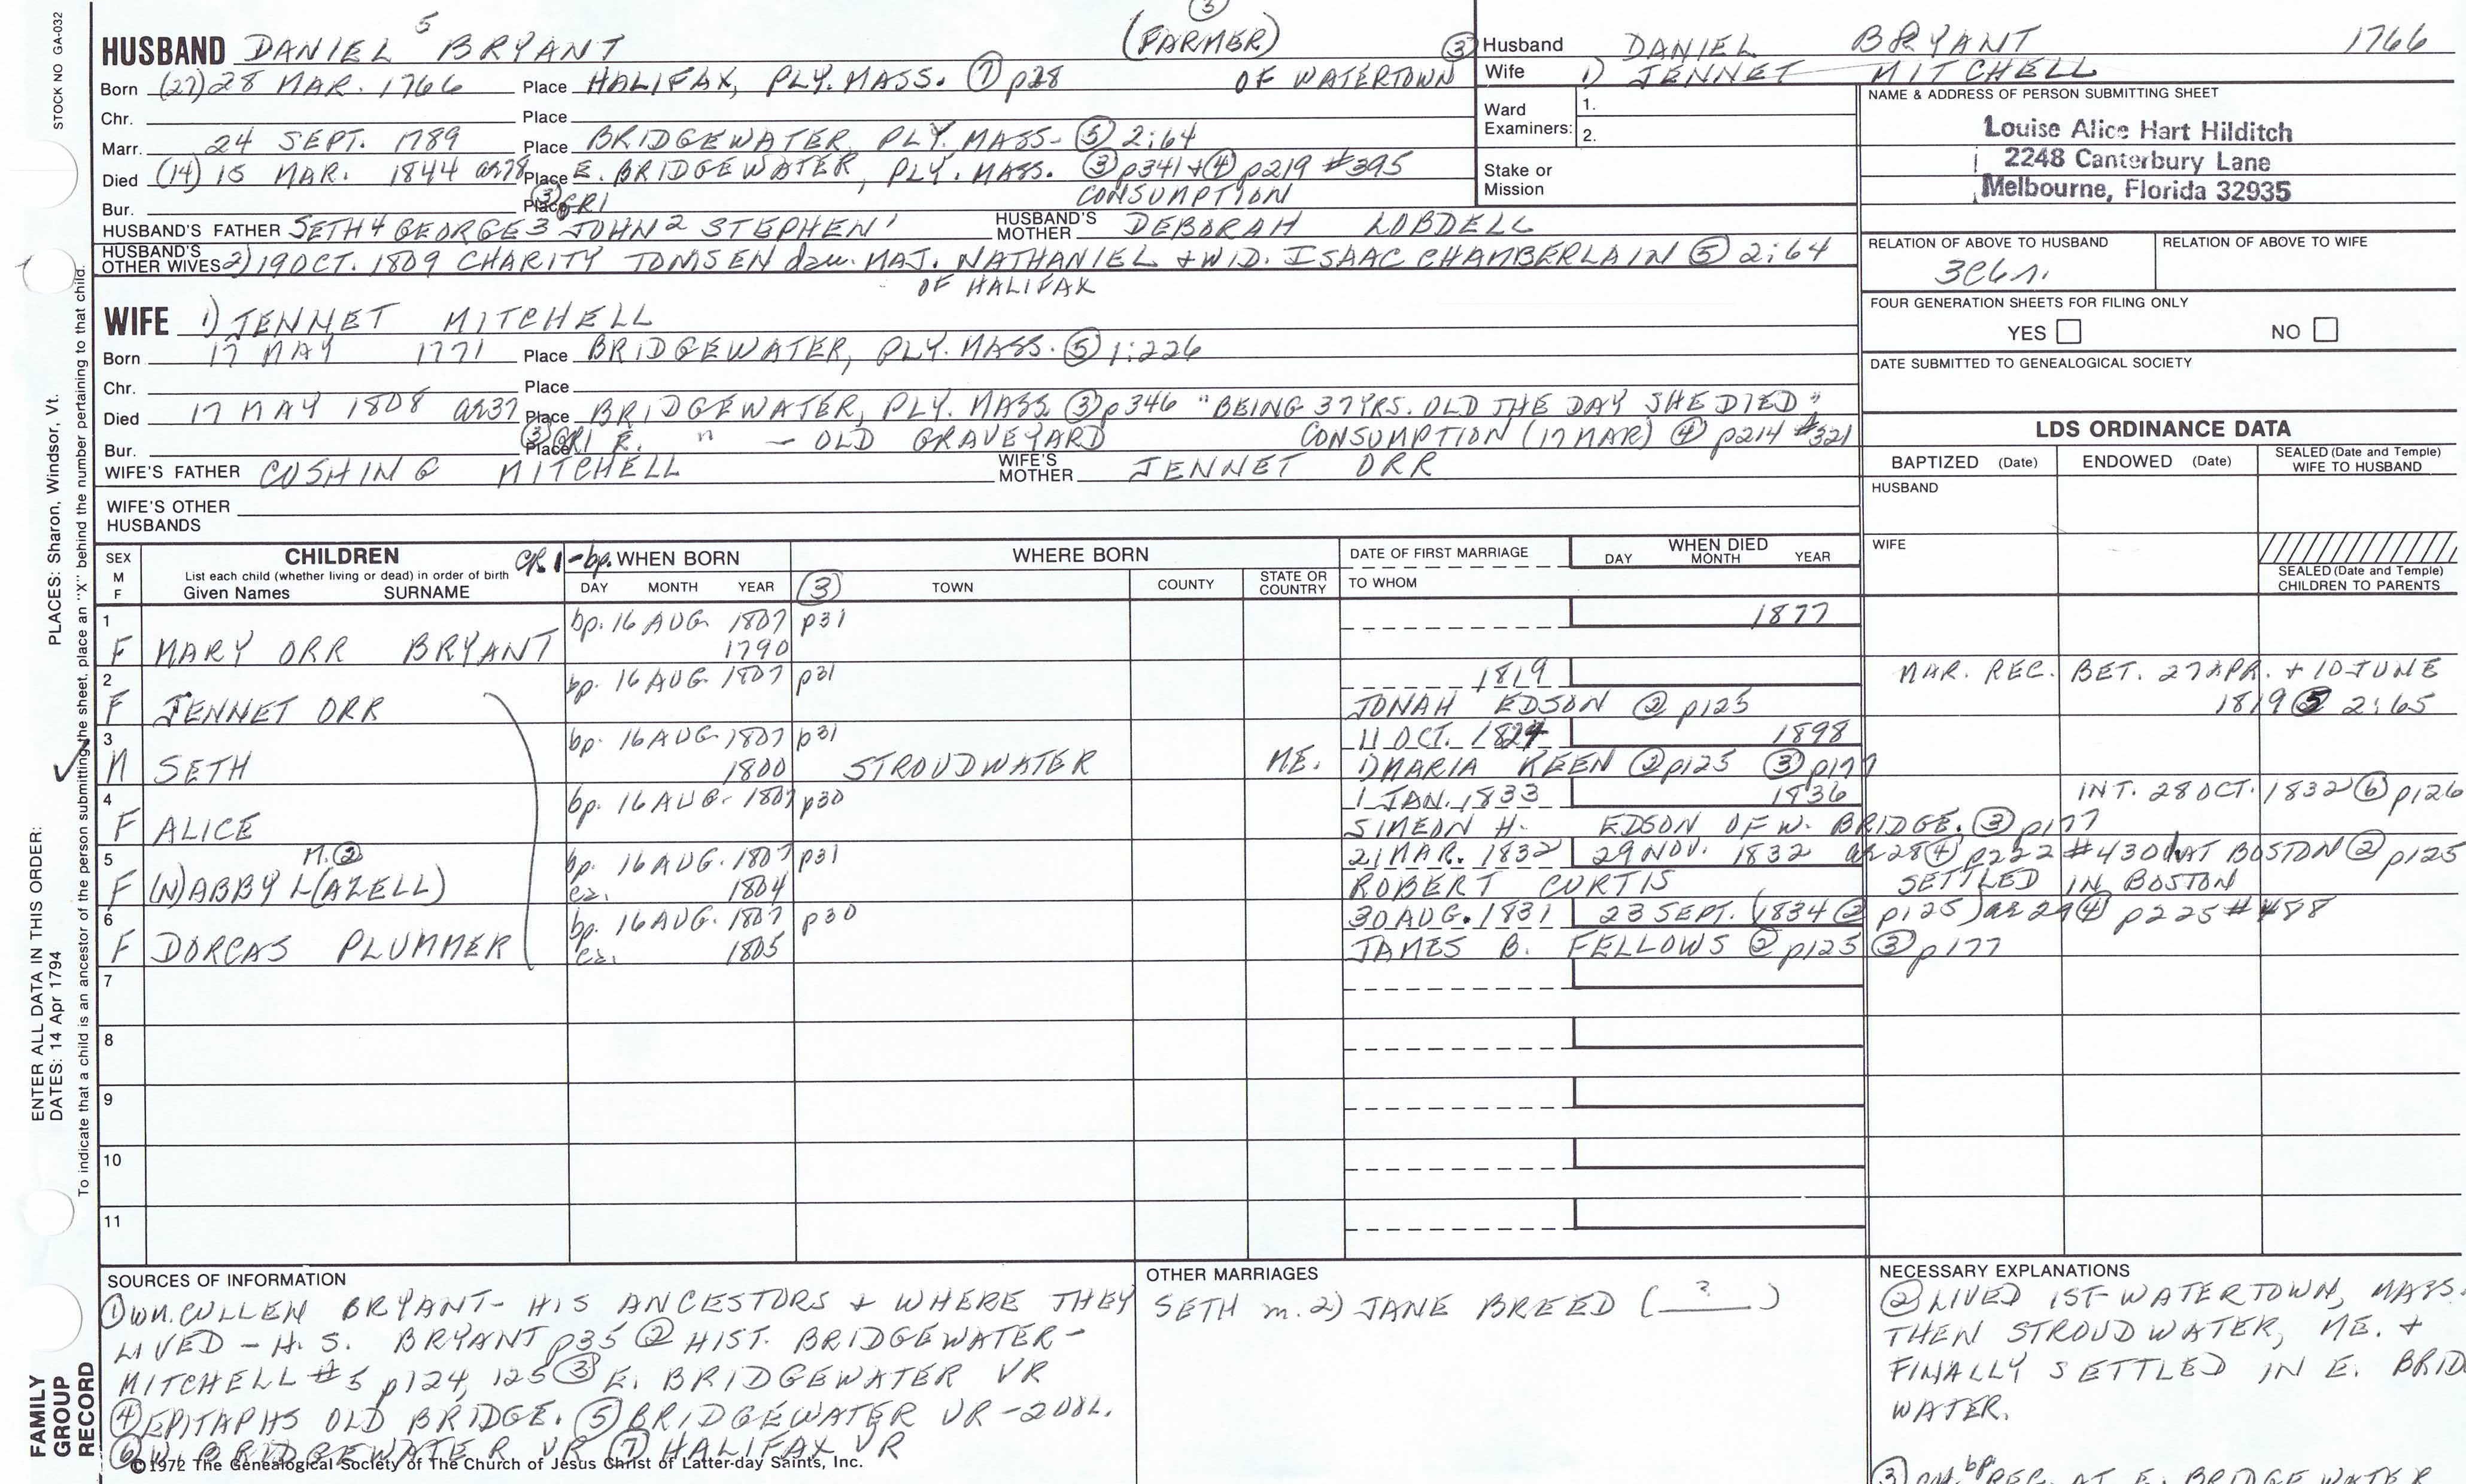 STOCK NO GA-032
PLACES: Sharon, Windsor, Vt.
ENTER ALL DATA IN THIS ORDER:
DATES: 14 Apr 1794
To indicate that a child is an ancestor of the person submitting the sheet, place an "X" behind the number pertaining to that child.
FAMILY
GROUP
RECORD
HUSBAND DANIEL 5 BRYANT (FARMER) ③
Born (27) 28 MAR. 1766 Place HALIFAX, PLY. MASS. ⑦ p28 OF WATERTOWN ③
Chr. Place
Marr. 24 SEPT. 1789 Place BRIDGEWATER, PLY. MASS- ⑤ 2:64
Died (14) 15 MAR. 1844 ae78 Place E. BRIDGEWATER, PLY. MASS. ③ p341 + ④ p219 #395
Bur. Place ③ GR1 CONSUMPTION
HUSBAND'S FATHER SETH 4 GEORGE 3 JOHN 2 STEPHEN 1 HUSBAND'S MOTHER DEBORAH LOBDELL
HUSBAND'S OTHER WIVES 2) 19 OCT. 1809 CHARITY TOMSEN dau. MAJ. NATHANIEL + WID. ISAAC CHAMBERLAIN ⑤ 2:64
OF HALIFAX
WIFE 1) JENNET MITCHELL
Born 17 MAY 1771 Place BRIDGEWATER, PLY. MASS. ⑤ 1:226
Chr. Place
Died 17 MAY 1808 ae37 Place BRIDGEWATER, PLY. MASS ③ p346 "BEING 37 YRS. OLD THE DAY SHE DIED"
Bur. Place ③ GR1 E. " - OLD GRAVEYARD CONSUMPTION (17 MAR) ④ p214 #321
WIFE'S FATHER CUSHING MITCHELL WIFE'S MOTHER JENNET ORR
WIFE'S OTHER
HUSBANDS
Husband DANIEL BRYANT 1766
Wife 1) JENNET MITCHELL
Ward
Examiners:
1.
2.
Stake or
Mission
NAME & ADDRESS OF PERSON SUBMITTING SHEET
Louise Alice Hart Hilditch
2248 Canterbury Lane
Melbourne, Florida 32935
RELATION OF ABOVE TO HUSBAND RELATION OF ABOVE TO WIFE
FOUR GENERATION SHEETS FOR FILING ONLY
YES NO
DATE SUBMITTED TO GENEALOGICAL SOCIETY
LDS ORDINANCE DATA
BAPTIZED (Date) ENDOWED (Date) SEALED (Date and Temple) WIFE TO HUSBAND
HUSBAND
WIFE
SEALED (Date and Temple)
CHILDREN TO PARENTS
SEX M F CHILDREN CR 1 - bp. WHEN BORN WHERE BORN DATE OF FIRST MARRIAGE WHEN DIED
List each child (whether living or dead) in order of birth
Given Names SURNAME DAY MONTH YEAR ③ TOWN COUNTY STATE OR COUNTRY TO WHOM DAY MONTH YEAR
1 bp. 16 AUG. 1807 p31 1877
F MARY ORR BRYANT 1790
2 bp. 16 AUG. 1807 p31 1819 MAR. REC. BET. 27 APR. + 10 JUNE
F JENNET ORR JONAH EDSON ② p125 1819 ⑤ 2:65
3 bp. 16 AUG. 1807 p31 11 OCT. 1824 1898
M SETH 1800 STROUDWATER ME. 1) MARIA KEEN ② p125 ③ p177
4 bp. 16 AUG. 1807 p30 1 JAN. 1833 1836 INT. 28 OCT. 1832 ⑥ p126
F ALICE SIMEON H. EDSON OF W. BRIDGE. ③ p177
5 M. ② bp. 16 AUG. 1807 p31 21 MAR. 1832 29 NOV. 1832 ae 28 ④ p222 #430 AT BOSTON ② p125
F (N)ABBY L(AZELL) ca. 1804 ROBERT CURTIS SETTLED IN BOSTON
6 bp. 16 AUG. 1807 p30 30 AUG. 1831 23 SEPT. (1834 ② p125) ae 29 ④ p225 #488
F DORCAS PLUMMER ca. 1805 JAMES B. FELLOWS ② p125 ③ p177
7
8
9
10
11
SOURCES OF INFORMATION
① WM. CULLEN BRYANT- HIS ANCESTORS + WHERE THEY
LIVED - H. S. BRYANT p35 ② HIST. BRIDGEWATER-
MITCHELL #5 p124, 125 ③ E. BRIDGEWATER VR
④ EPITAPHS OLD BRIDGE. ⑤ BRIDGEWATER VR - 2 VOL.
⑥ W. BRIDGEWATER VR ⑦ HALIFAX VR
©1972 The Genealogical Society of The Church of Jesus Christ of Latter-day Saints, Inc.
OTHER MARRIAGES
SETH m. 2) JANE BREED ( ? )
NECESSARY EXPLANATIONS
② LIVED 1ST WATERTOWN, MASS.
THEN STROUDWATER, ME. +
FINALLY SETTLED IN E. BRID
WATER.
③ bp. REC. AT E. BRIDGEWATER